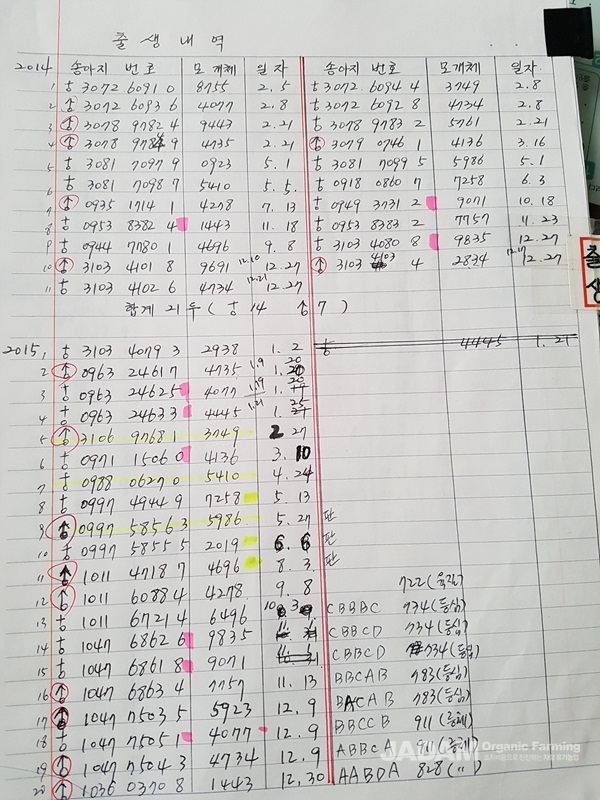 출생내역
2014 송아지 번호 모개체 일자 송아지 번호 모개체 일자
1 ♀ 3072 6091 0 8755 2. 5 ♀ 3072 6094 4 3749 2. 8
2 ♀ 3072 6093 6 4077 2. 8 ♀ 3072 6092 8 4734 2. 8
3 ↑ 3078 9782 4 9443 2. 21 ♀ 3078 9783 2 5761 2. 21
4 ↑ 3078 9784 9 4735 2. 21 ↑ 3079 0746 1 4136 3. 16
5 ♀ 3081 7097 9 0923 5. 1 ♀ 3081 7099 5 5986 5. 1
6 ♀ 3081 7098 7 5410 5. 5. ♀ 0918 0860 7 7258 6. 3
7 ↑ 0935 1714 1 4278 7. 13 ♀ 0949 3731 2 9071 10. 18
8 ♀ 0953 8382 4 1443 11. 18 ♀ 0953 8383 2 7757 11. 23
9 ♀ 0944 7780 1 4696 9. 8 ♀ 3103 4080 8 9835 12. 27
10 ↑ 3103 4101 8 9691 12.10 12. 27 ↑ 3103 4103 4 2834 12.17 12. 27
11 ♀ 3103 4102 6 4734 12.21 12. 27
합계 21두 ( ♀ 14 ↑ 7 )
2015, ♀ 3103 4079 3 2938 1. 2 ♀ 4445 1. 21
2 ↑ 0963 2461 7 4735 1.9 1. 20
3 ♀ 0963 2462 5 4077 1.19 20
4 ♀ 0963 2463 3 4445 1.21 25
5 ↑ 3106 9768 1 3749 2 27
6 ♀ 0971 1506 0 4136 3. 10
7 ♀ 0988 0627 0 5410 4. 24
8 ♀ 0997 4944 9 7258 5. 13
9 ↑ 0997 5856 3 5986 5. 27 판
10 ♀ 0997 5855 5 2019 6. 6 판
11 ↑ 1011 4718 7 4696 8. 3. 판
12 ↑ 1011 6088 4 4278 9. 8 722(육질)
13 ♀ 1011 6721 4 6496 10. 3 CBBBC 734(등심)
14 ♀ 1047 6862 6 9835 CBBCD 734(등심)
15 ♀ 1047 6861 8 9071 11. 1 CBBCD 734(등심)
16 ↑ 1047 6863 4 7757 11. 13 BBCAB 783(등심)
17 ↑ 1047 7503 5 5923 12. 9 BACAB 783(등심)
18 ♀ 1047 7505 1 4077 12. 9 BBCCB 911
19 ↑ 1047 7504 3 4734 12. 9 ABBCA
20 ↑ 1036 0370 8 1443 12. 30 AABDA 828(〃)
출생
JADAM Organic Farming